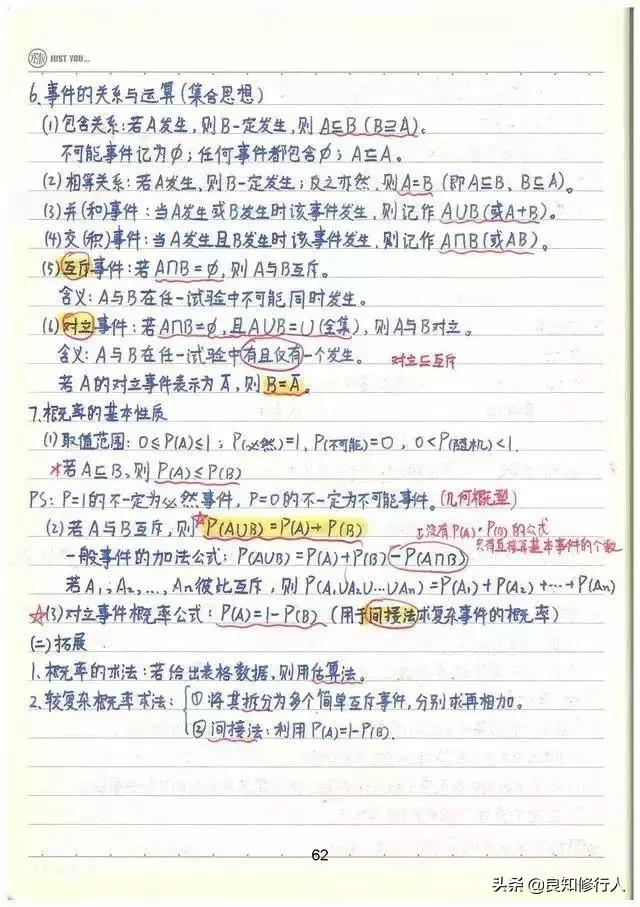 YEAH JUST YOU...
6.事件的关系与运算(集合思想)
(1)包含关系:若A发生,则B一定发生,则A⊆B(B⊇A)。
不可能事件记为∅;任何事件都包含∅;A⊆A。
(2)相等关系:若A发生,则B一定发生;反之亦然,则A=B(即A⊆B、B⊆A)。
(3)并(和)事件:当A发生或B发生时该事件发生,则记作A∪B(或A+B)。
(4)交(积)事件:当A发生且B发生时该事件发生,则记作A∩B(或AB)。
(5)互斥事件:若A∩B=∅,则A与B互斥。
含义:A与B在任一试验中不可能同时发生。
(6)对立事件:若A∩B=∅,且A∪B=U(全集),则A与B对立。
含义:A与B在任一试验中有且仅有一个发生。 对立⊆互斥
若A的对立事件表示为Ā,则B=Ā。
7.概率的基本性质
(1)取值范围:0≤P(A)≤1;P(必然)=1,P(不可能)=0,0<P(随机)<1.
*若A⊆B,则P(A)≤P(B)
PS:P=1的不一定为必然事件,P=0的不一定为不可能事件。(几何概型)
(2)若A与B互斥,则☆P(A∪B)=P(A)+P(B) 没有P(A)·P(B)的公式
只有直接算基本事件的个数
一般事件的加法公式:P(A∪B)=P(A)+P(B)-P(A∩B)
若A₁,A₂,…,Aₙ彼此互斥,则P(A₁∪A₂∪…∪Aₙ)=P(A₁)+P(A₂)+…+P(Aₙ)
☆(3)对立事件概率公式:P(A)=1-P(B)(用于间接法求复杂事件的概率)
(二)拓展
1.概率的求法:若给出表格数据,则用估算法。
2.较复杂概率求法:①将其拆分为多个简单互斥事件,分别求再相加。
②间接法:利用P(A)=1-P(B).
62
头条@良知修行人